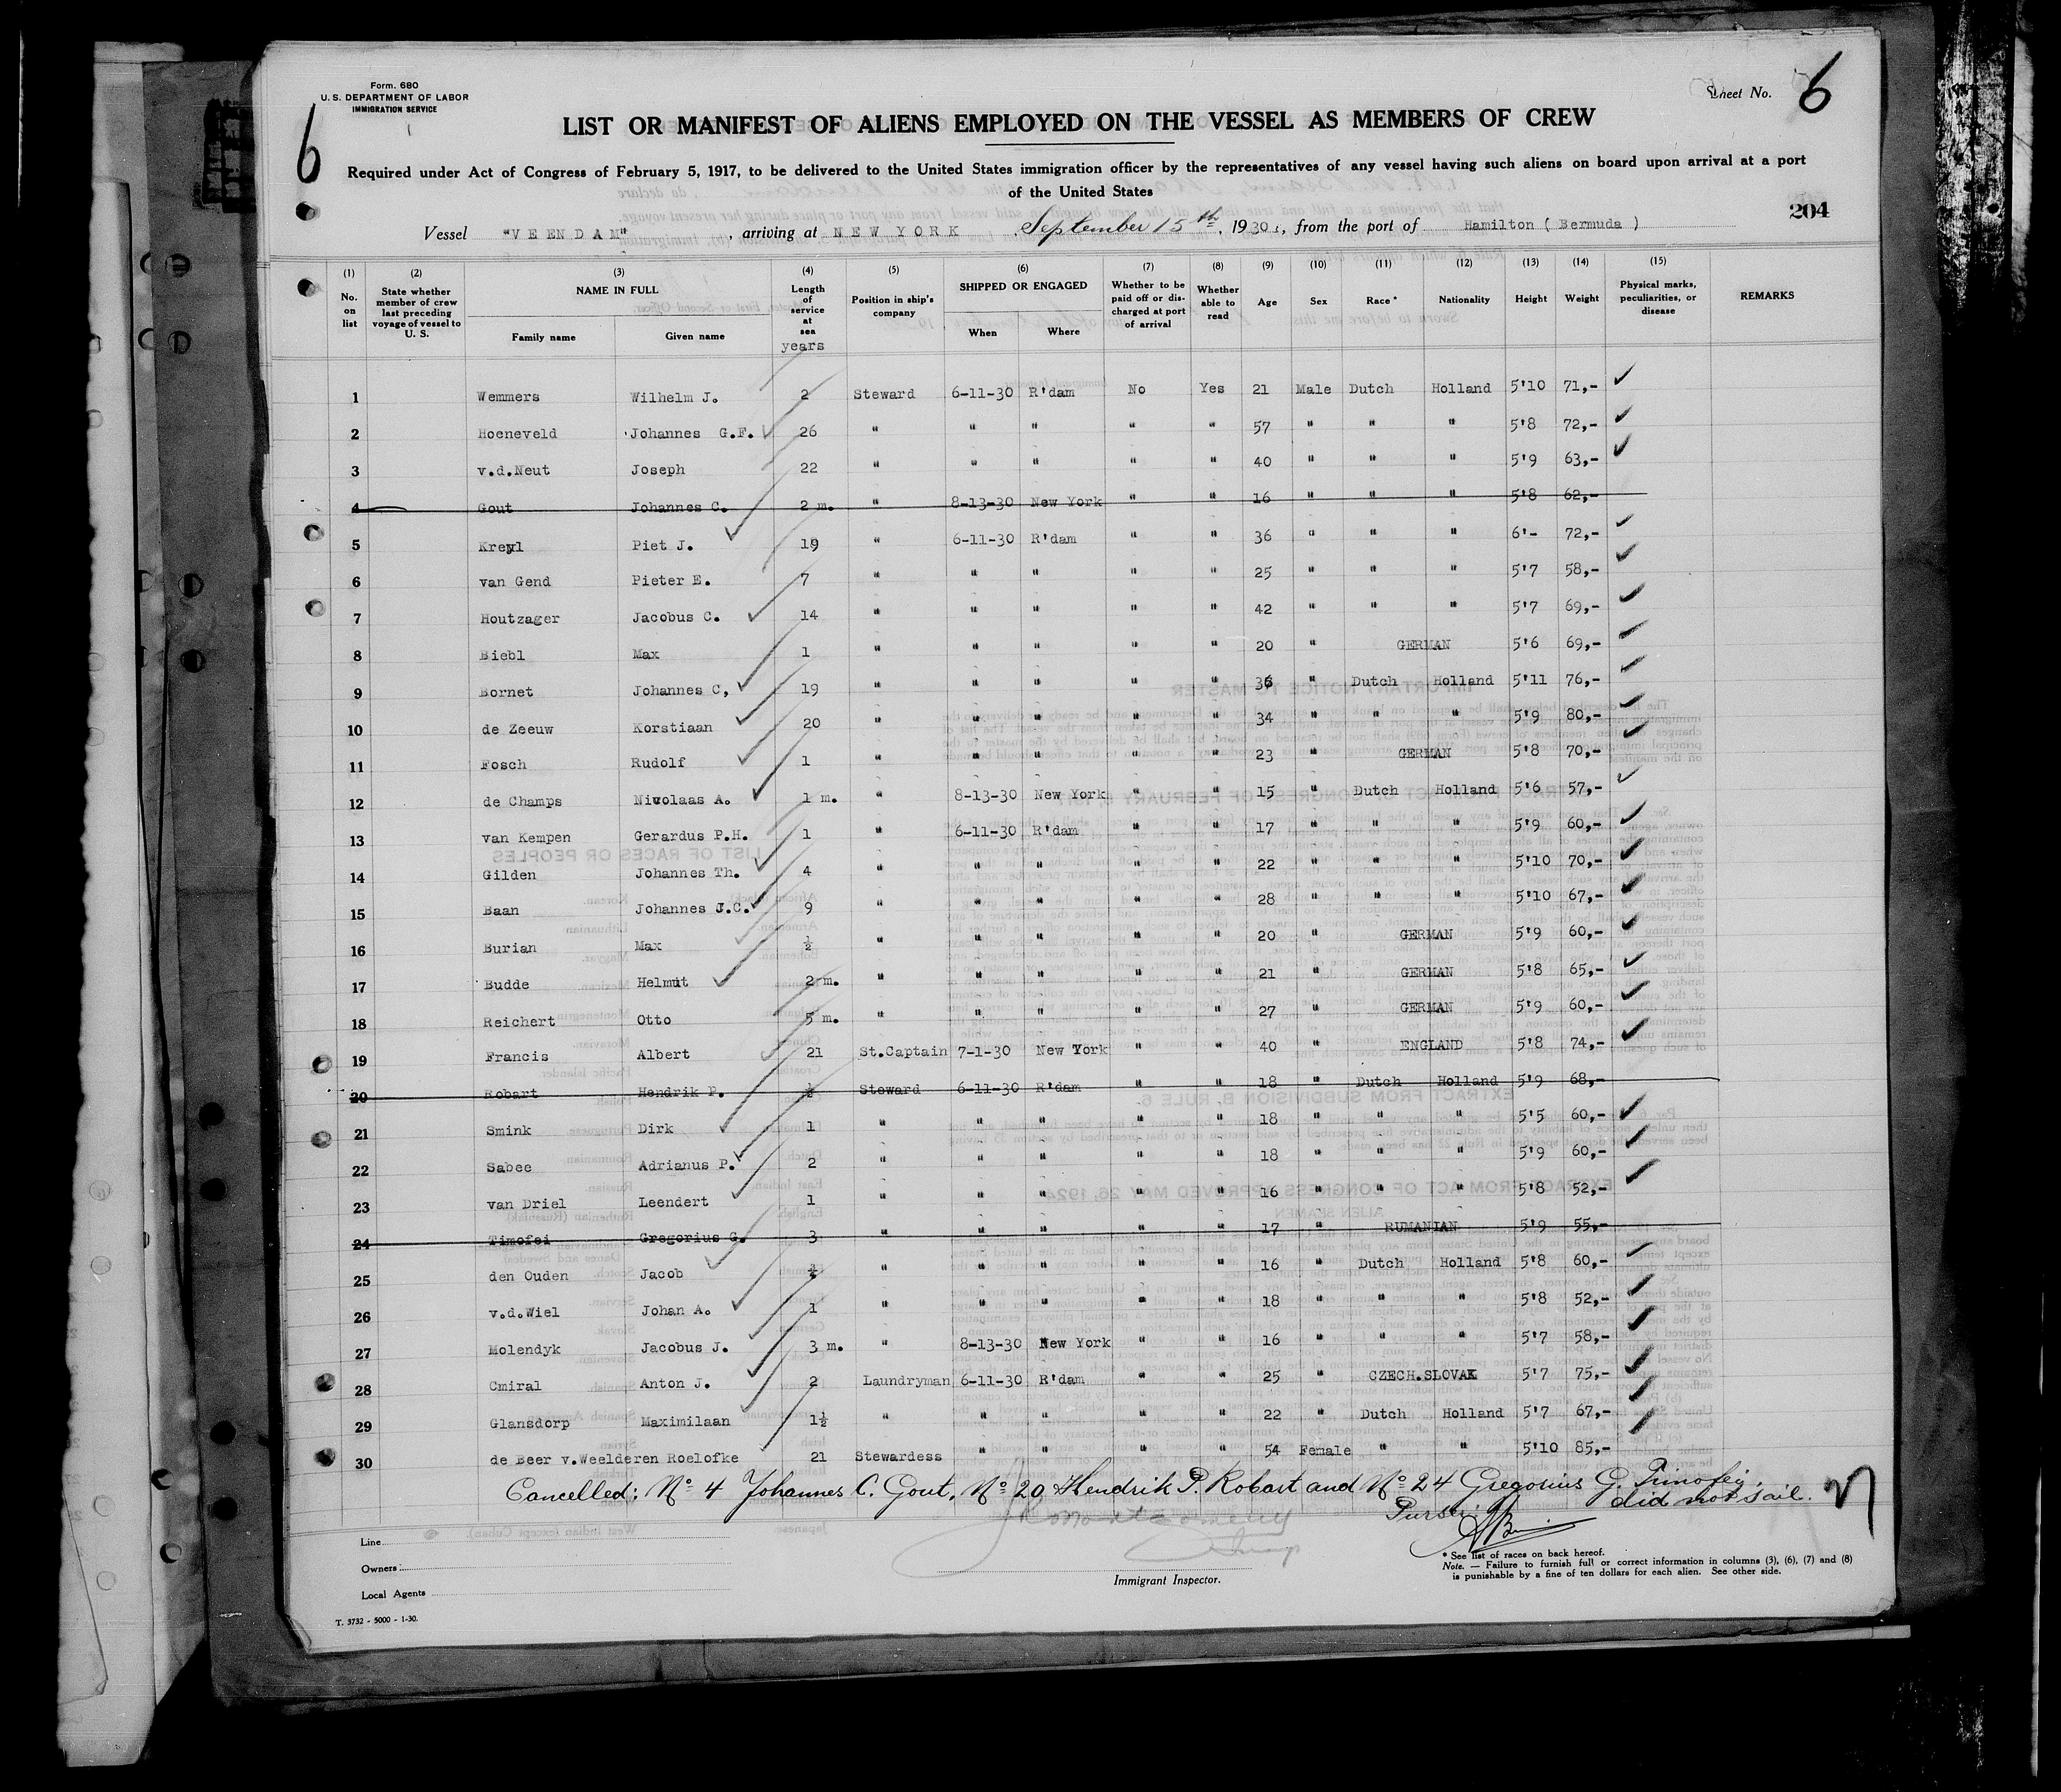 Form. 680
U. S. DEPARTMENT OF LABOR
IMMIGRATION SERVICE
6
Sheet No. 6
LIST OR MANIFEST OF ALIENS EMPLOYED ON THE VESSEL AS MEMBERS OF CREW
Required under Act of Congress of February 5, 1917, to be delivered to the United States immigration officer by the representatives of any vessel having such aliens on board upon arrival at a port
of the United States
204
Vessel "VEENDAM", arriving at NEW YORK, September 15th, 1930, from the port of Hamilton ( Bermuda )
(1) (2) (3) (4) (5) (6) (7) (8) (9) (10) (11) (12) (13) (14) (15)
No. on list State whether member of crew last preceding voyage of vessel to U. S. NAME IN FULL Family name Given name Length of service at sea years Position in ship's company SHIPPED OR ENGAGED When Where Whether to be paid off or discharged at port of arrival Whether able to read Age Sex Race* Nationality Height Weight Physical marks, peculiarities, or disease REMARKS
1 Wemmers Wilhelm J. 2 Steward 6-11-30 R'dam No Yes 21 Male Dutch Holland 5'10 71,-
2 Hoeneveld Johannes G.F. 26 " " " " " 57 " " " 5'8 72,-
3 v.d.Neut Joseph 22 " " " " " 40 " " " 5'9 63,-
4 Gout Johannes C. 2 m. " 8-13-30 New York " " 16 " " " 5'8 62,-
5 Kreyl Piet J. 19 " 6-11-30 R'dam " " 36 " " " 6'- 72,-
6 van Gend Pieter E. 7 " " " " " 25 " " " 5'7 58,-
7 Houtzager Jacobus C. 14 " " " " " 42 " " " 5'7 69,-
8 Biebl Max 1 " " " " " 20 " GERMAN 5'6 69,-
9 Bornet Johannes C, 19 " " " " " 36 " Dutch Holland 5'11 76,-
10 de Zeeuw Korstiaan 20 " " " " " 34 " " " 5'9 80,-
11 Fosch Rudolf 1 " " " " " 23 " GERMAN 5'8 70,-
12 de Champs Nicolaas A. 1 m. " 8-13-30 New York " " 15 " Dutch Holland 5'6 57,-
13 van Kempen Gerardus P.H. 1 " 6-11-30 R'dam " " 17 " " " 5'9 60,-
14 Gilden Johannes Th. 4 " " " " " 22 " " " 5'10 70,-
15 Baan Johannes J.C. 9 " " " " " 28 " " " 5'10 67,-
16 Burian Max ½ " " " " " 20 " GERMAN 5'9 60,-
17 Budde Helmut 2 m. " " " " " 21 " GERMAN 5'8 65,-
18 Reichert Otto 5 m. " " " " " 27 " GERMAN 5'9 60,-
19 Francis Albert 21 St.Captain 7-1-30 New York " " 40 " ENGLAND 5'8 74,-
20 Robart Hendrik P. ½ Steward 6-11-30 R'dam " " 18 " Dutch Holland 5'9 68,-
21 Smink Dirk 1 " " " " " 18 " " " 5'5 60,-
22 Sabee Adrianus P. 2 " " " " " 18 " " " 5'9 60,-
23 van Driel Leendert 1 " " " " " 16 " " " 5'8 52,-
24 Timofei Gregorius G. 3 " " " " " 17 " RUMANIAN 5'9 55,-
25 den Ouden Jacob " " " " " 16 " Dutch Holland 5'8 60,-
26 v.d.Wiel Johan A. 1 " " " " " 18 " " " 5'8 52,-
27 Molendyk Jacobus J. 3 m. " 8-13-30 New York " " 16 " " " 5'7 58,-
28 Cmiral Anton J. 2 Laundryman 6-11-30 R'dam " " 25 " CZECH.SLOVAK 5'7 75,-
29 Glansdorp Maximilaan 1½ " " " " " 22 " Dutch Holland 5'7 67,-
30 de Beer v.Weelderen Roelofke 21 Stewardess " " " " 54 Female " " 5'10 85,-
Cancelled: No 4 Johannes C. Gout, No 20 Hendrik P. Robart and No 24 Gregorius G. Timofei,
did not sail.
Purser
Line
Owners:
Local Agents
Immigrant Inspector.
* See list of races on back hereof.
Note. — Failure to furnish full or correct information in columns (3), (6), (7) and (8)
is punishable by a fine of ten dollars for each alien. See other side.
T. 3732 - 5000 - 1-30.